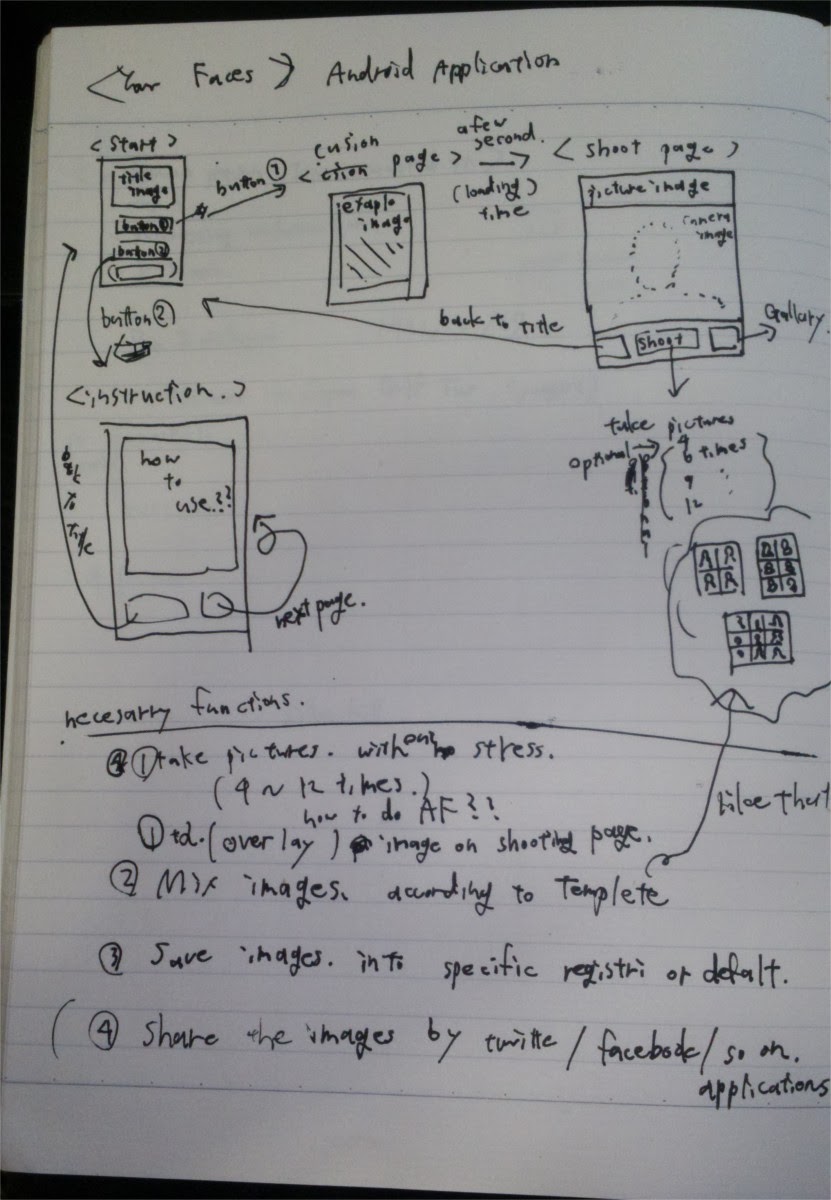 < Your Faces > Android Application
< Start >
title
image
button①
button②
button①
cusion
< page >
exaple
image
a few
second.
(loading)
time
< shoot page >
picture image
camera
image
back to title
shoot
Gallary.
button②
<instruction.>
how
to
use.??
back
To
Title
next page.
take pictures
optional
4
6 times
9
12
A R
R R
necesarry functions.
① take pictures. without stress.
(4 ~ 12 times.)
how to do AF??
① td. (overlay) image on shooting page.
② Mix images. according to Templete
like that
③ Save images. into specific registri or defalt.
( ④ Share the images by twitte / facebook / so on.
applications